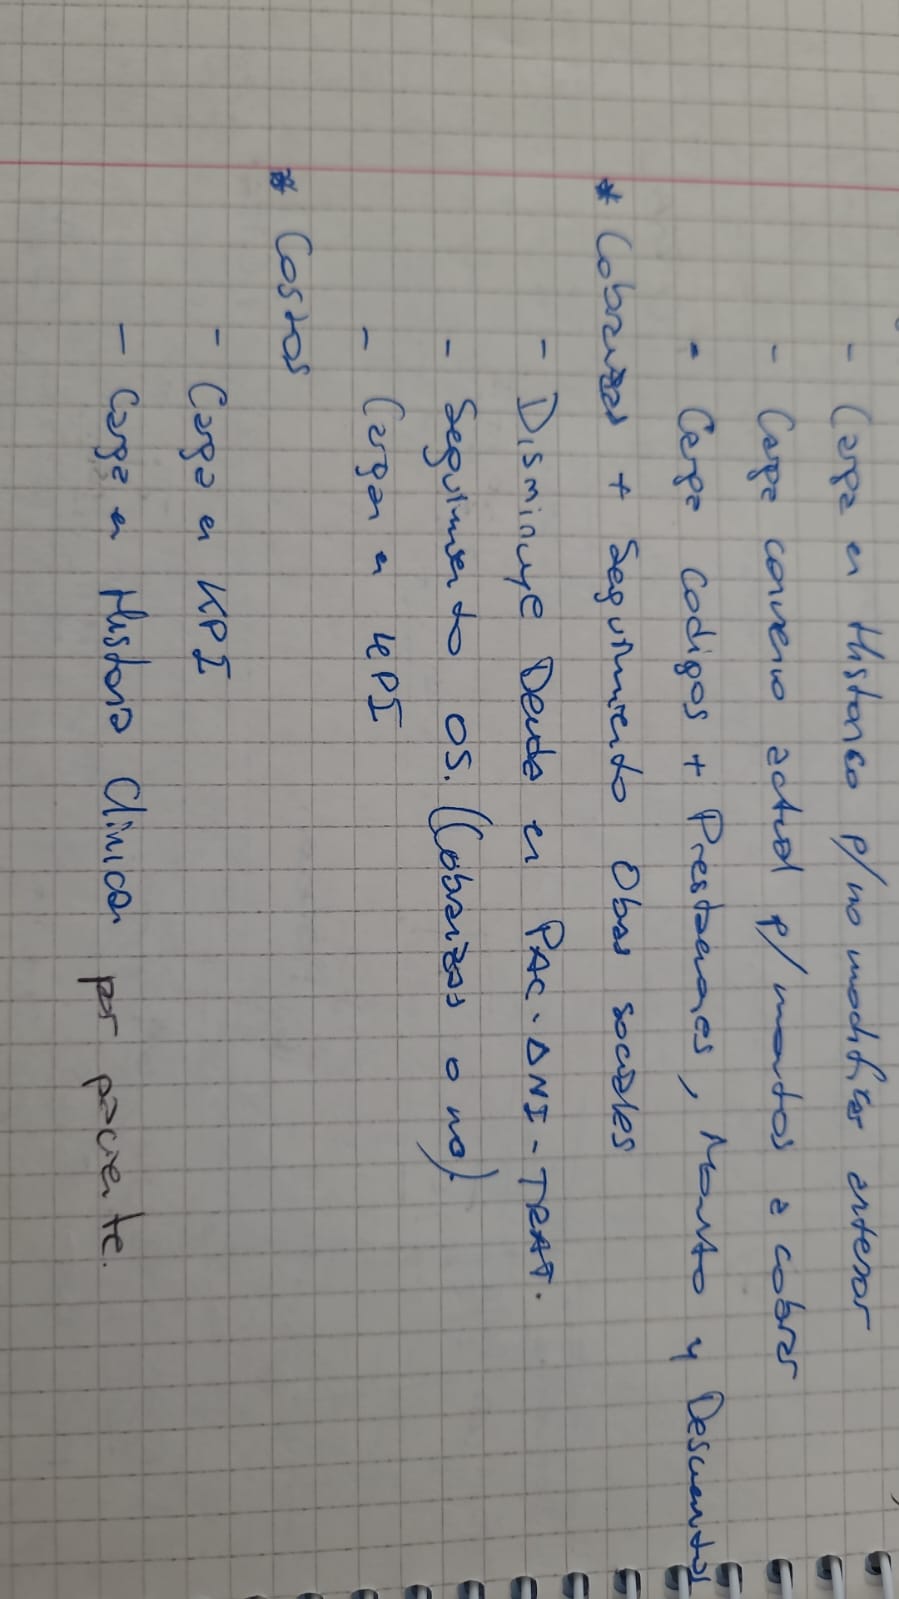 - Carga en Historico p/no modificar anterior
- Carga convenio actual p/ montos a cobrar
- Carga codigos + Prestaciones, Monto y Descuentos
* Cobranzas + Seguimiento Obras sociales
- Disminuye Deuda en PAC - DNI - TRAT.
- Seguimiento OS. (Cobranzas o no).
- Cargar en KPI
* Costos
- Carga en KPI
- Carga en Historia Clinica por paciente.